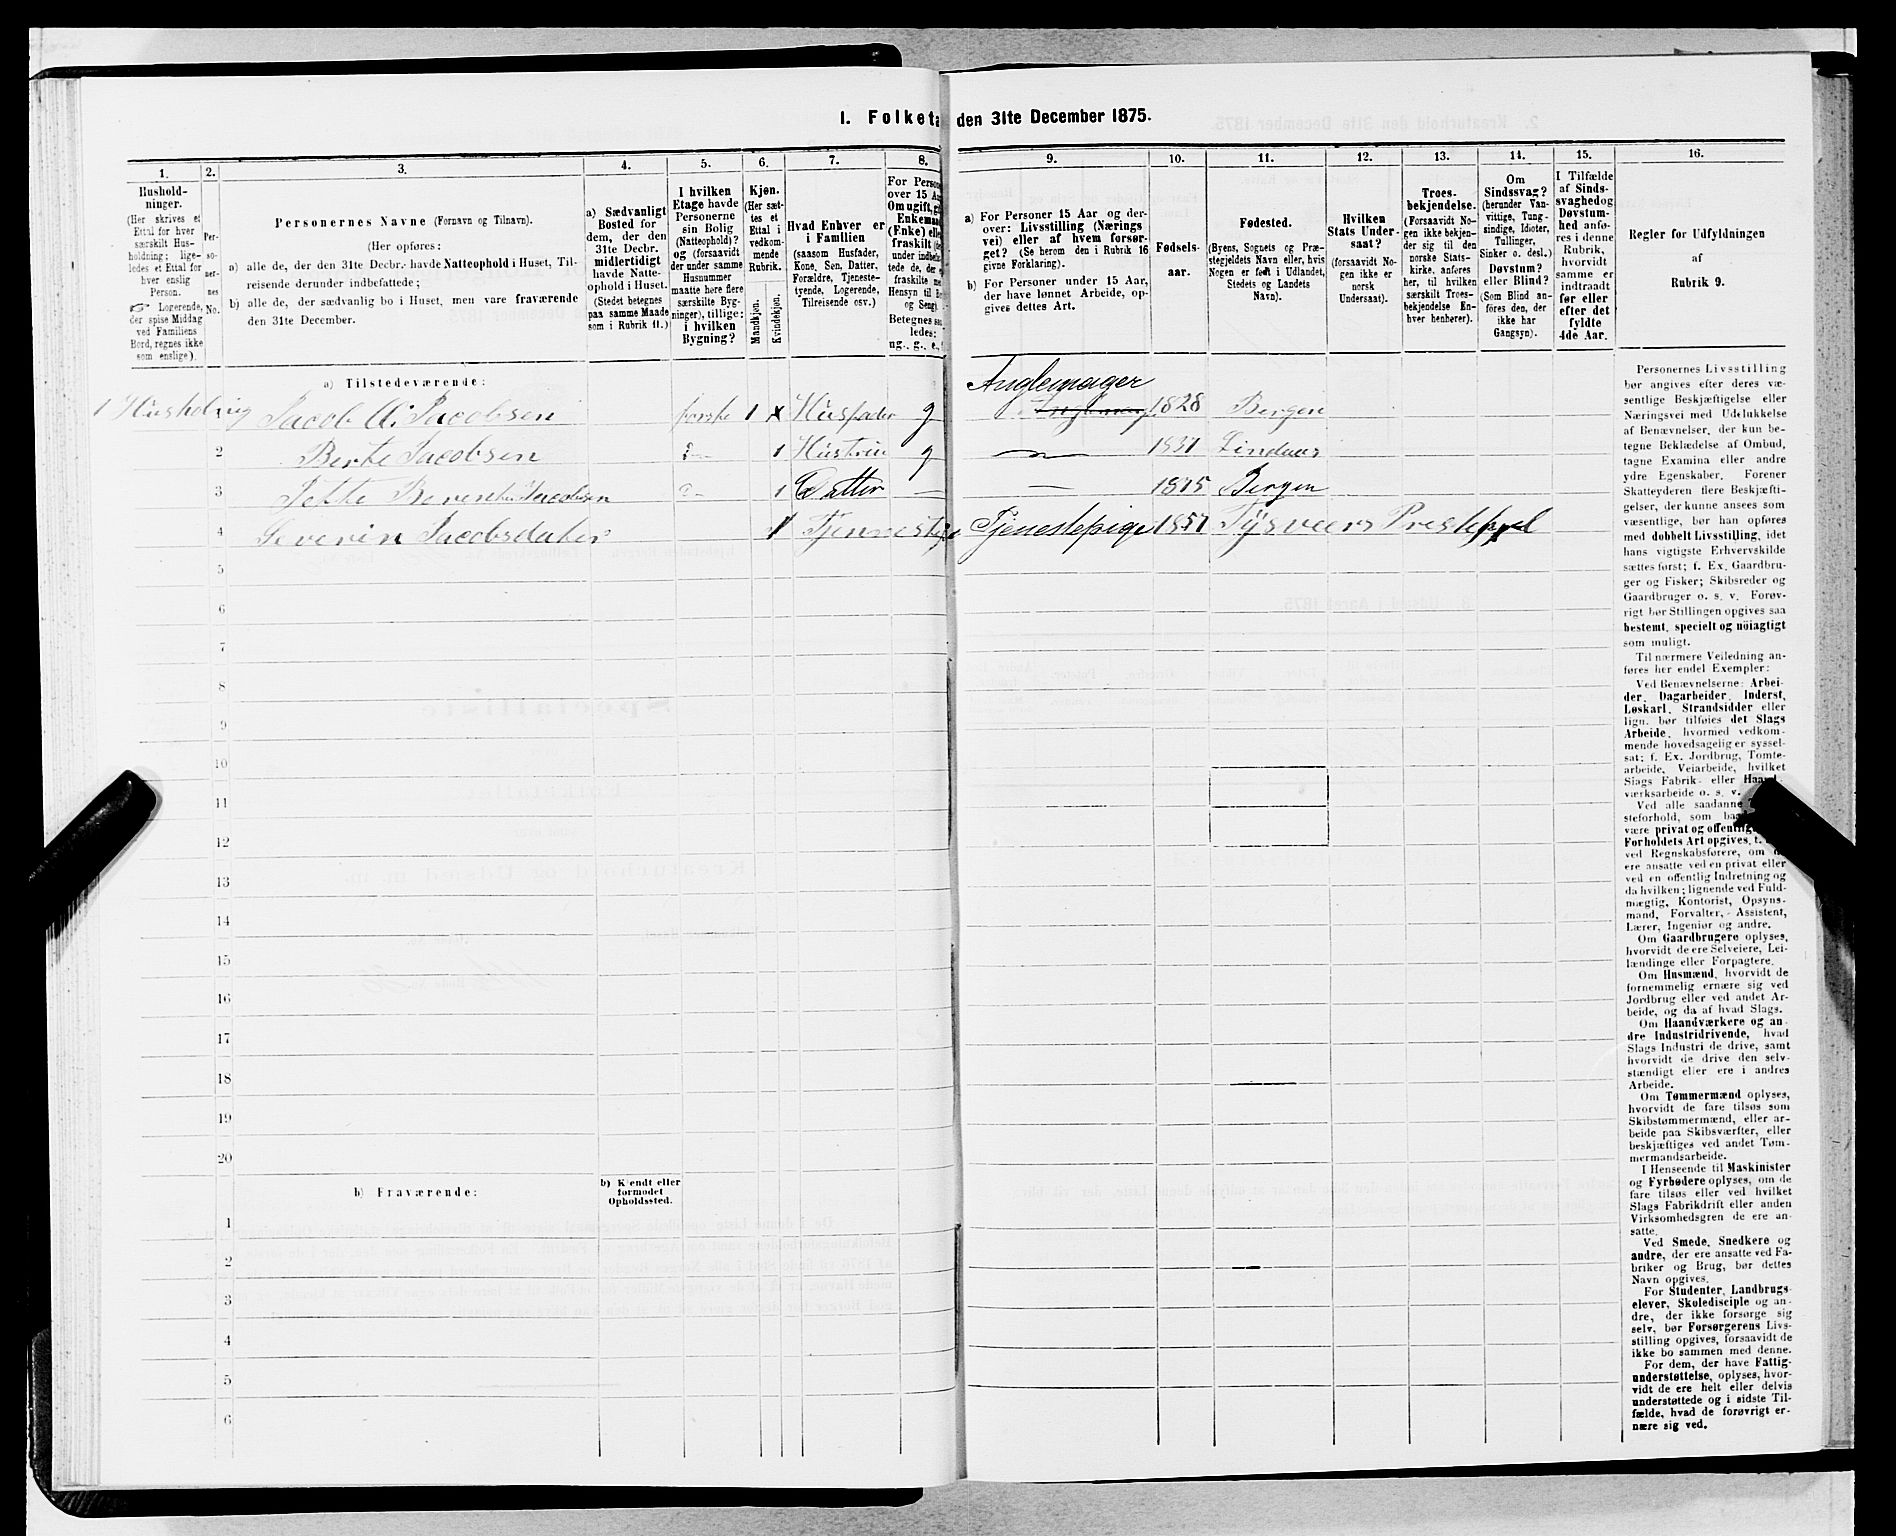 1. Folketa den 31te December 1875.
1.
Hushold-
ninger.
(Her skrives et
Ettal for hver
særskilt Hus-
holdning; lige-
ledes et Ettal for
hver enslig
Person.
Logerende,
der spise Middag
ved Familiens
Bord, regnes ikke
som enslige).
2.
Per-
so-
ner-
nes
No.
3.
Personernes Navne (Fornavn og Tilnavn).
(Her opføres:
a) alle de, der den 31te Decbr. havde Natteophold i Huset, Til-
reisende derunder indbefattede;
b) alle de, der sædvanlig bo i Huset, men vare fraværende
den 31te December.
4.
a) Sædvanligt
Bosted for
dem, der den
31te Decbr.
midlertidigt
havde Natte-
ophold i Huset.
(Stedet betegnes
paa samme Maade
som i Rubrik 11.)
5.
I hvilken
Etage havde
Personerne
sin Bolig
(Natteophold)?
og (forsaavidt
der under samme
Husnummer
maatte høre flere
særskilte Byg-
ninger), tillige:
i hvilken
Bygning?
6.
Kjøn.
(Her sæt-
tes et
Ettal i
vedkom-
mende
Rubrik.
Mandkjøn.
Kvindekjøn.
7.
Hvad Enhver er
i Familien
(saasom Husfader,
Kone, Søn, Datter,
Forældre, Tjeneste-
tyende, Logerende,
Tilreisende osv.)
8.
For Person
over 15 Aa
Om ugift, gi
Enkemand
(Enke) elle
fraskilt (de
under indbefat-
tede de, der e
fraskilte me
Hensyn til B
og Seng).
Betegnes saa
ledes:
ug., g., e.,
9.
a) For Personer 15 Aar og der-
over: Livsstilling (Nærings
vei) eller af hvem forsør-
get? (Se herom den i Rubrik 16
givne Forklaring).
b) For Personer under 15 Aar,
der have lønnet Arbeide, op-
gives dettes Art.
10.
Fødsels-
aar.
11.
Fødested.
(Byens, Sognets og Præ-
stegjeldets Navn eller, hvis
Nogen er født i Udlandet,
Stedets og Landets
Navn).
12.
Hvilken
Stats Under-
saat?
(forsaavidt No-
gen ikke er
norsk
Undersaat).
13.
Troes-
bekjendelse.
(Forsaavidt No-
gen ikke bekjen-
der sig til den
norske Stats-
kirke, anføres
her, til hvilken
særskilt Troes-
bekjendelse En-
hver henhører).
14.
Om
Sindssvag?
(herunder Van-
vittige, Tung-
sindige, Idioter,
Tullinger,
Sinker o. desl.)
Døvstum?
eller Blind?
(Som Blind an-
føres den, der
ikke har
Gangsyn).
15.
I Tilfælde
af Sinds-
svaghed og
Døvstum-
hed anfø-
res i denne
Rubrik,
hvorvidt
samme er
indtraadt
før eller
efter det
fyldte
4de Aar.
16.
Regler for Udfyldningen
af
Rubrik 9.
a) Tilstedeværende:
Anglemager
1 Husholdning Jacob Jacobsen første 1 x Husfader g 1828 Bergen
2 Berte Jacobsen 1 Hustru g 1837 Lindaas
3 Jacobsen 1 Datter — — 1875 Bergen
4 Severin Jacobsdater 1 Tjenestepige 1857 Tysveers
5
6
7
8
9
10
11
12
13
14
15
16
17
18
19
20
b) Fraværende:
b) Kjendt eller
formodet
Opholdssted.
1
2
3
4
5
6
Personernes Livsstilling
bør angives efter deres væ-
sentlige Beskjæftigelse eller
Næringsvei med Udelukkelse
af Benævnelser, der kun be-
tegne Beklædelse af Ombud,
tagne Examina eller andre
ydre Egenskaber. Forener
Skatteyderen flere Beskjæfti-
gelser, der kunne ansees som
væsentlige, bør han opføres
med dobbelt Livsstilling, idet
hans vigtigste Erhvervskilde
sættes først; f. Ex. Gaardbru-
ger og Fisker; Skibsreder og
Gaardbruger o. s. v. Forøv-
rigt bør Stillingen opgives saa
bestemt, specielt og nöiagtigt
som muligt.
Til nærmere Veiledning an-
føres her endel Exempler:
Ved Benævnelserne: Arbei-
der, Dagarbeider, Inderst,
Løskarl, Strandsidder eller
lign. bør tilføies det Slags
Arbeide, hvormed vedkom-
mende hovedsagelig er syssel-
sat; f. Ex. Jordbrug, Tomte-
arbeide, Veiarbeide, hvilket
Slags Fabrik- eller Haand-
værksarbeide o. s. v.
Ved alle saadanne
steforhold, som
være privat og offentlig
Forholdets Art opgives,
ved Regnskabsførere, om
ere ansatte ved en privat eller
ved en offentlig Indretning og
da hvilken; lignende ved Fuld-
mægtig, Kontorist, Opsyns-
mand, Forvalter, Assistent,
Lærer, Ingeniør og andre.
Om Gaardbrugere oplyses,
hvorvidt de ere Selveiere, Lei-
lændinge eller Forpagtere.
Om Husmænd, hvorvidt de
fornemmelig ernære sig ved
Jordbrug eller ved andet Ar-
beide, og da af hvad Slags.
Om Haandværkere og an-
dre Industridrivende, hvad
Slags Industri de drive, samt
hvorvidt de drive den selv-
stændigt eller ere i andres
Arbeide.
Om Tømmermænd oplyses,
hvorvidt de fare tilsøs som
Skibstømmermænd, eller ar-
beide paa Skibsværfter, eller
beskjæftiges ved andet Tøm-
mermandsarbeide.
I Henseende til Maskinister
og Fyrbødere oplyses, om de
fare tilsøs eller ved hvilket
Slags Fabrikdrift eller anden
Virksomhedsgren de ere an-
satte.
Ved Smede, Snedkere og
andre, der ere ansatte ved Fa-
briker og Brug, bør dettes
Navn opgives.
For Studenter, Landbrugs-
elever, Skoledisciple og an-
dre, der ikke forsørge sig
selv, bør Forsørgerens Livs-
stilling opgives, forsaavidt de
ikke bo sammen med denne.
For dem, der have Fattig-
understøttelse, oplyses, hvor-
vidt de ere helt eller delvis
understøttede og i sidste Til-
fælde, hvad de forøvrigt er-
nære sig ved.